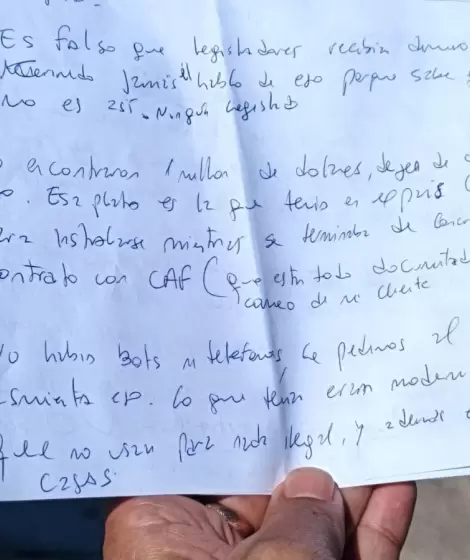 Es falso que legisladores recibían dinero
jamás el habló de eso porque sabe
no es así. Ningún legislad
encontraron 1 millon de dolares, dejen de
. Esa plata es la que tenía en el país
instalarse mientras se terminaba de
ontrato con CAF (que está todo documentad
correo de mi cliente
o había bots ni teléfonos, le pedimos al
smienta eso. Lo que tenía eran modem
que no usan para nada ilegal, y además
casas.